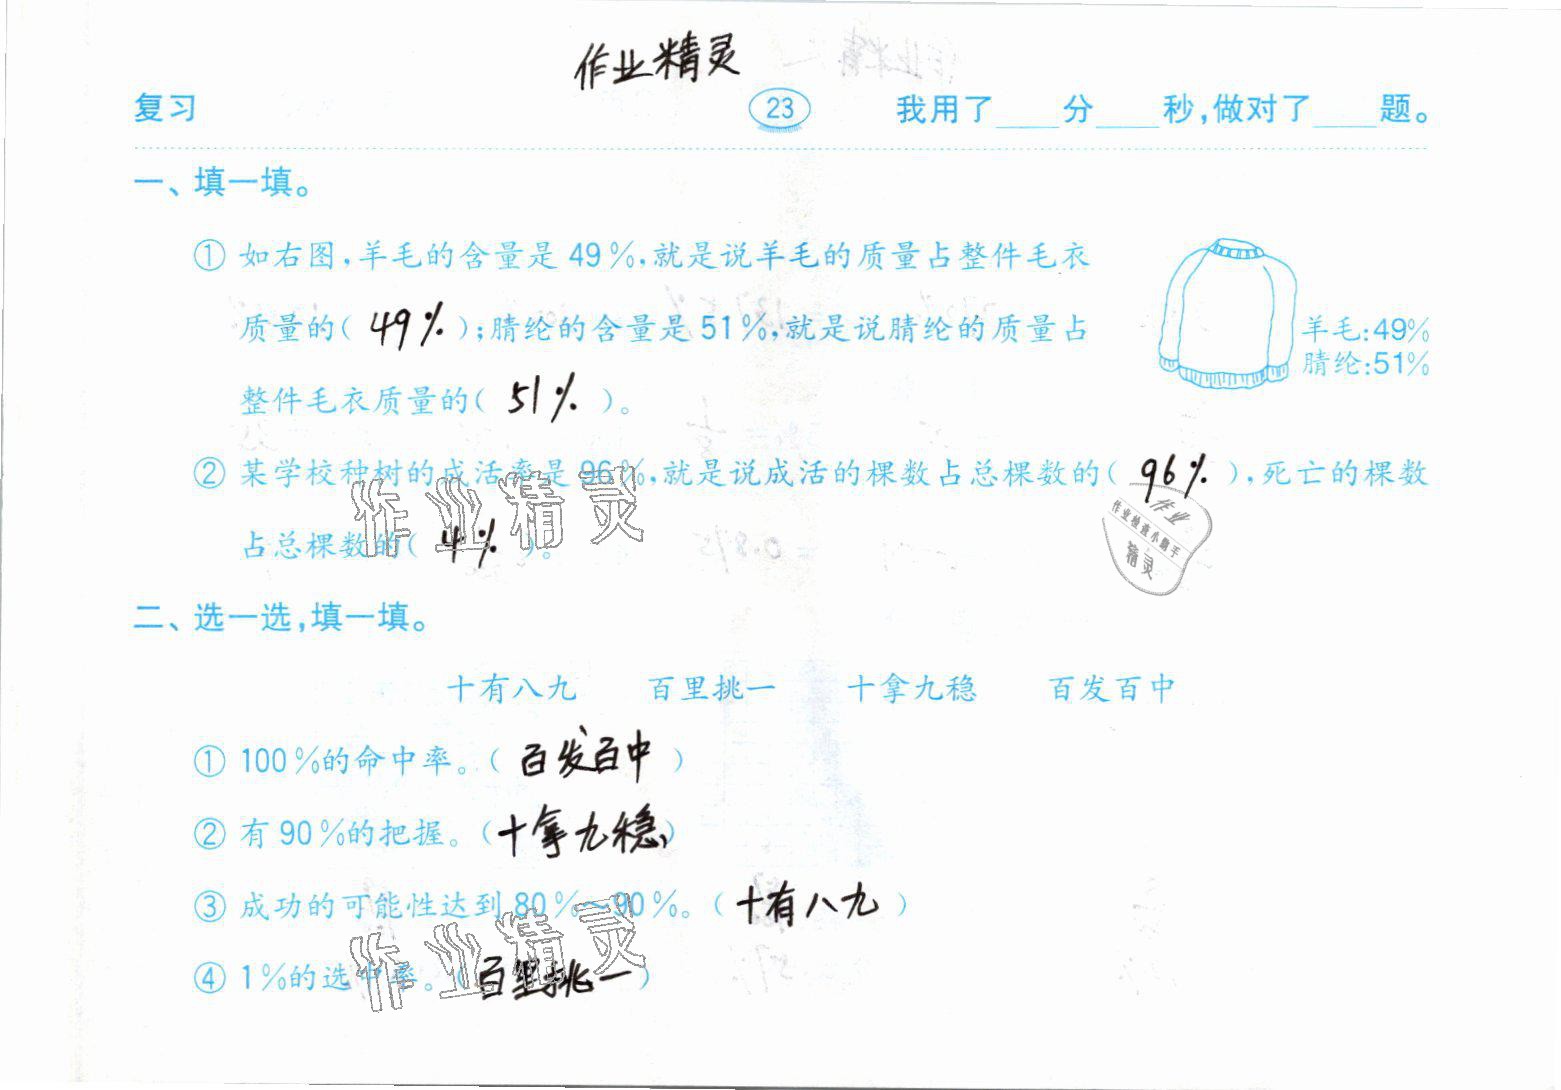 作业精灵
复习 23 我用了____分____秒,做对了____题。
一、填一填。
① 如右图,羊毛的含量是49%,就是说羊毛的质量占整件毛衣
质量的( 49% );腈纶的含量是51%,就是说腈纶的质量占
整件毛衣质量的( 51% )。
羊毛:49%
腈纶:51%
② 某学校种树的成活率是96%,就是说成活的棵数占总棵数的( 96% ),死亡的棵数
占总棵数的( 4% )。
作业精灵
作业
作业检查小助手
精灵
二、选一选,填一填。
十有八九 百里挑一 十拿九稳 百发百中
① 100%的命中率。( 百发百中 )
② 有90%的把握。( 十拿九稳 )
③ 成功的可能性达到80%~90%。( 十有八九 )
④ 1%的选中率。( 百里挑一 )
作业精灵